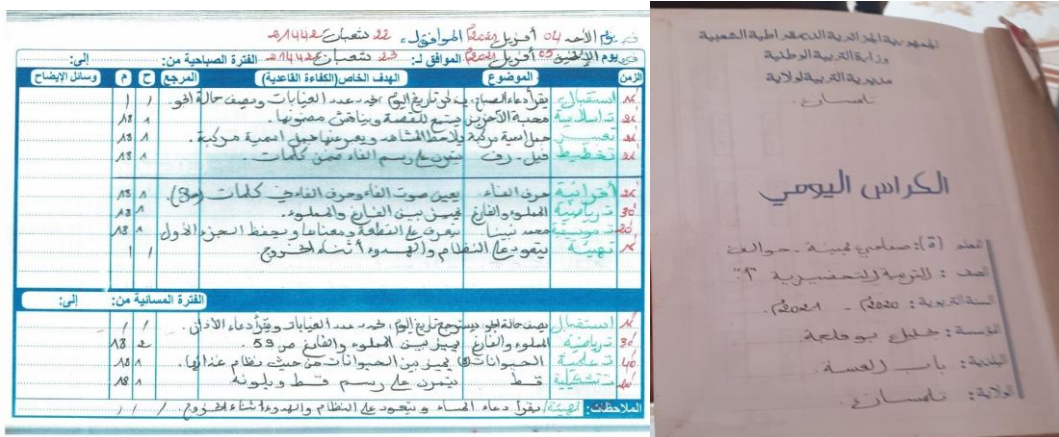 في يوم الأحد 04 أفريل 2021 الموافق لـ 22 شعبان 1442هـ
في يوم الإثنين 05 أفريل 2021 الموافق لـ: 23 شعبان 1442هـ الفترة الصباحية من: إلى:
الزمن الموضوع الهدف الخاص (الكفاءة القاعدية) المرجع ح م وسائل الإيضاح
استقبال يقرأ دعاء الصباح، يذكر تاريخ اليوم، عدد الغيابات ويصف حالة الجو / /
ت إسلامية محبة الآخرين يستمع للقصة ويناقش مضمونها. 1 18
تعبير جمل اسمية مركبة يلاحظ المشاهد ويعبر عنها بجمل اسمية مركبة. 1 18
تخطيط فيل - رف يتمرن على رسم الفاء ضمن كلمات. 1 18
حرف الفاء يعين صوت الفاء وحرف الفاء في كلمات
30' ت رياضية المملوء والفارغ يميز بين الفارغ والمملوء. 1 18
20' ت موسيقية محمد نبينا يتعرف على القطعة ومعناها ويحفظ الجزء الأول 1 18
تهيئة يتعود على النظام والهدوء أثناء الخروج. / /
الفترة المسائية من: إلى:
استقبال يصف حالة الجو عدد الغيابات ويقرأ دعاء الأذان. / /
30' ت رياضية المملوء والفارغ يميز بين المملوء والفارغ ص 59. 2 18
40' ت علمية الحيوانات يميز بين الحيوانات من حيث نظام غذائها. 1 18
ت تشكيلية قط يتمرن على رسم قط ويلونه 1 18
الملاحظات: تهيئة / يقرأ دعاء المساء ويتعود على النظام والهدوء أثناء الخروج. / /
الجمهورية الجزائرية الديمقراطية الشعبية
وزارة التربية الوطنية
مديرية التربية لولاية
تلمسان.
الكراس اليومي
المعلم (ة): يمينة - حوالف
الصف: التربية التحضيرية "1"
السنة التربوية: 2020م - 2021م.
المؤسسة: خليل بوفلجة
البلدية: باب العسة.
الولاية: تلمسان.